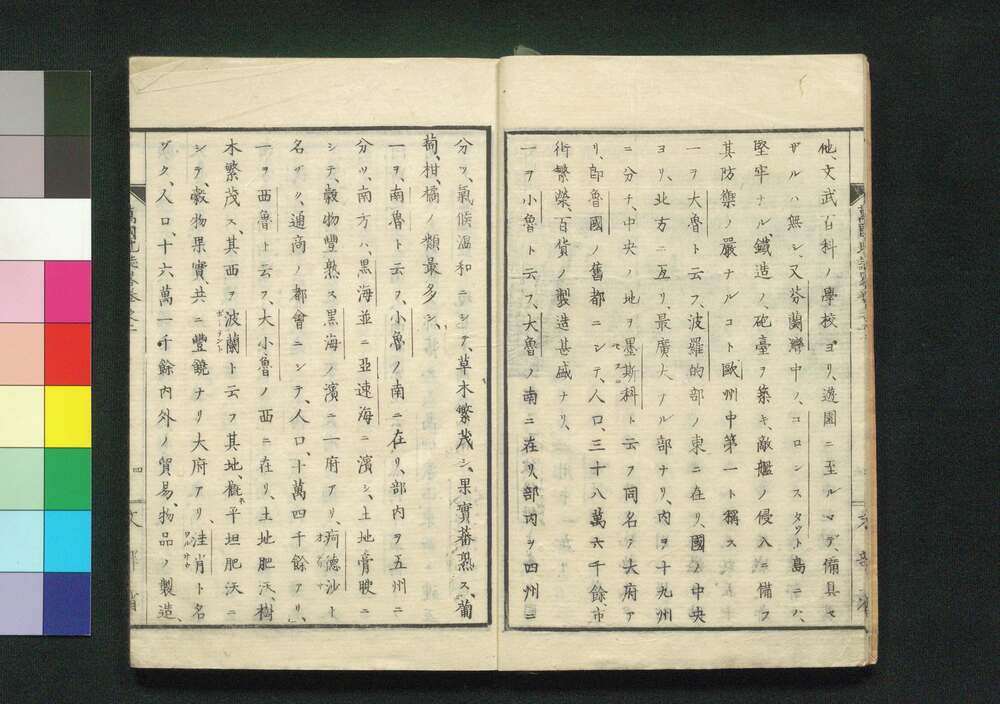 他、文武百科ノ學校ヨリ、遊園ニ至ルマデ、備具セ
ザルハ無シ、又芬蘭灣中ノ、コロンスタット島ニハ、
堅牢ナル、鐵造ノ、砲臺ヲ築キ、敵艦ノ侵入ニ備フ
其防禦ノ嚴ナルコト歐州中第一ト稱ス
一ヲ大魯ト云フ、波羅的部ノ東ニ在リ、國ノ中央
ヨリ、北方ニ亙リ最廣大ナル部ナリ、内ヲ十九州
ニ分チ、中央ノ地ヲ墨斯科ト云フ同名ノ大府ア
リ、即魯國ノ舊都ニシテ、人口、三十八萬六千餘、市
街繁榮、百貨ノ製造甚盛ナリ、
一ヲ小魯ト云フ、大魯ノ南ニ在リ、部内ヲ四州ニ
分ツ、氣候温和ニシテ、草木繁茂シ、果實蕃熟ス、葡
萄、柑橘ノ類最多シ、
一ヲ、南魯ト云フ、小魯ノ南ニ在リ、部内ヲ五州ニ
分ツ、南方ハ、黒海並ニ亞速海ニ濱シ、土地膏腴ニ
シテ、穀物豐熟ス黒海ノ濱ニ一府アリ、疴德沙ト
名ヅク、通商ノ都會ニシテ、人口、十萬四千餘アリ、
一ヲ西魯ト云フ、大小魯ノ西ニ在リ、土地肥沃、樹
木繁茂ス、其西ヲ波蘭ト云フ其地、概ネ平坦肥沃ニ
ポーランド
シテ、穀物果實、共ニ豐饒ナリ大府アリ、洼肖ト名
ワルサウ
ヅク、人口、十六萬一千餘内外ノ貿易、物品ノ製造、
四
文部省